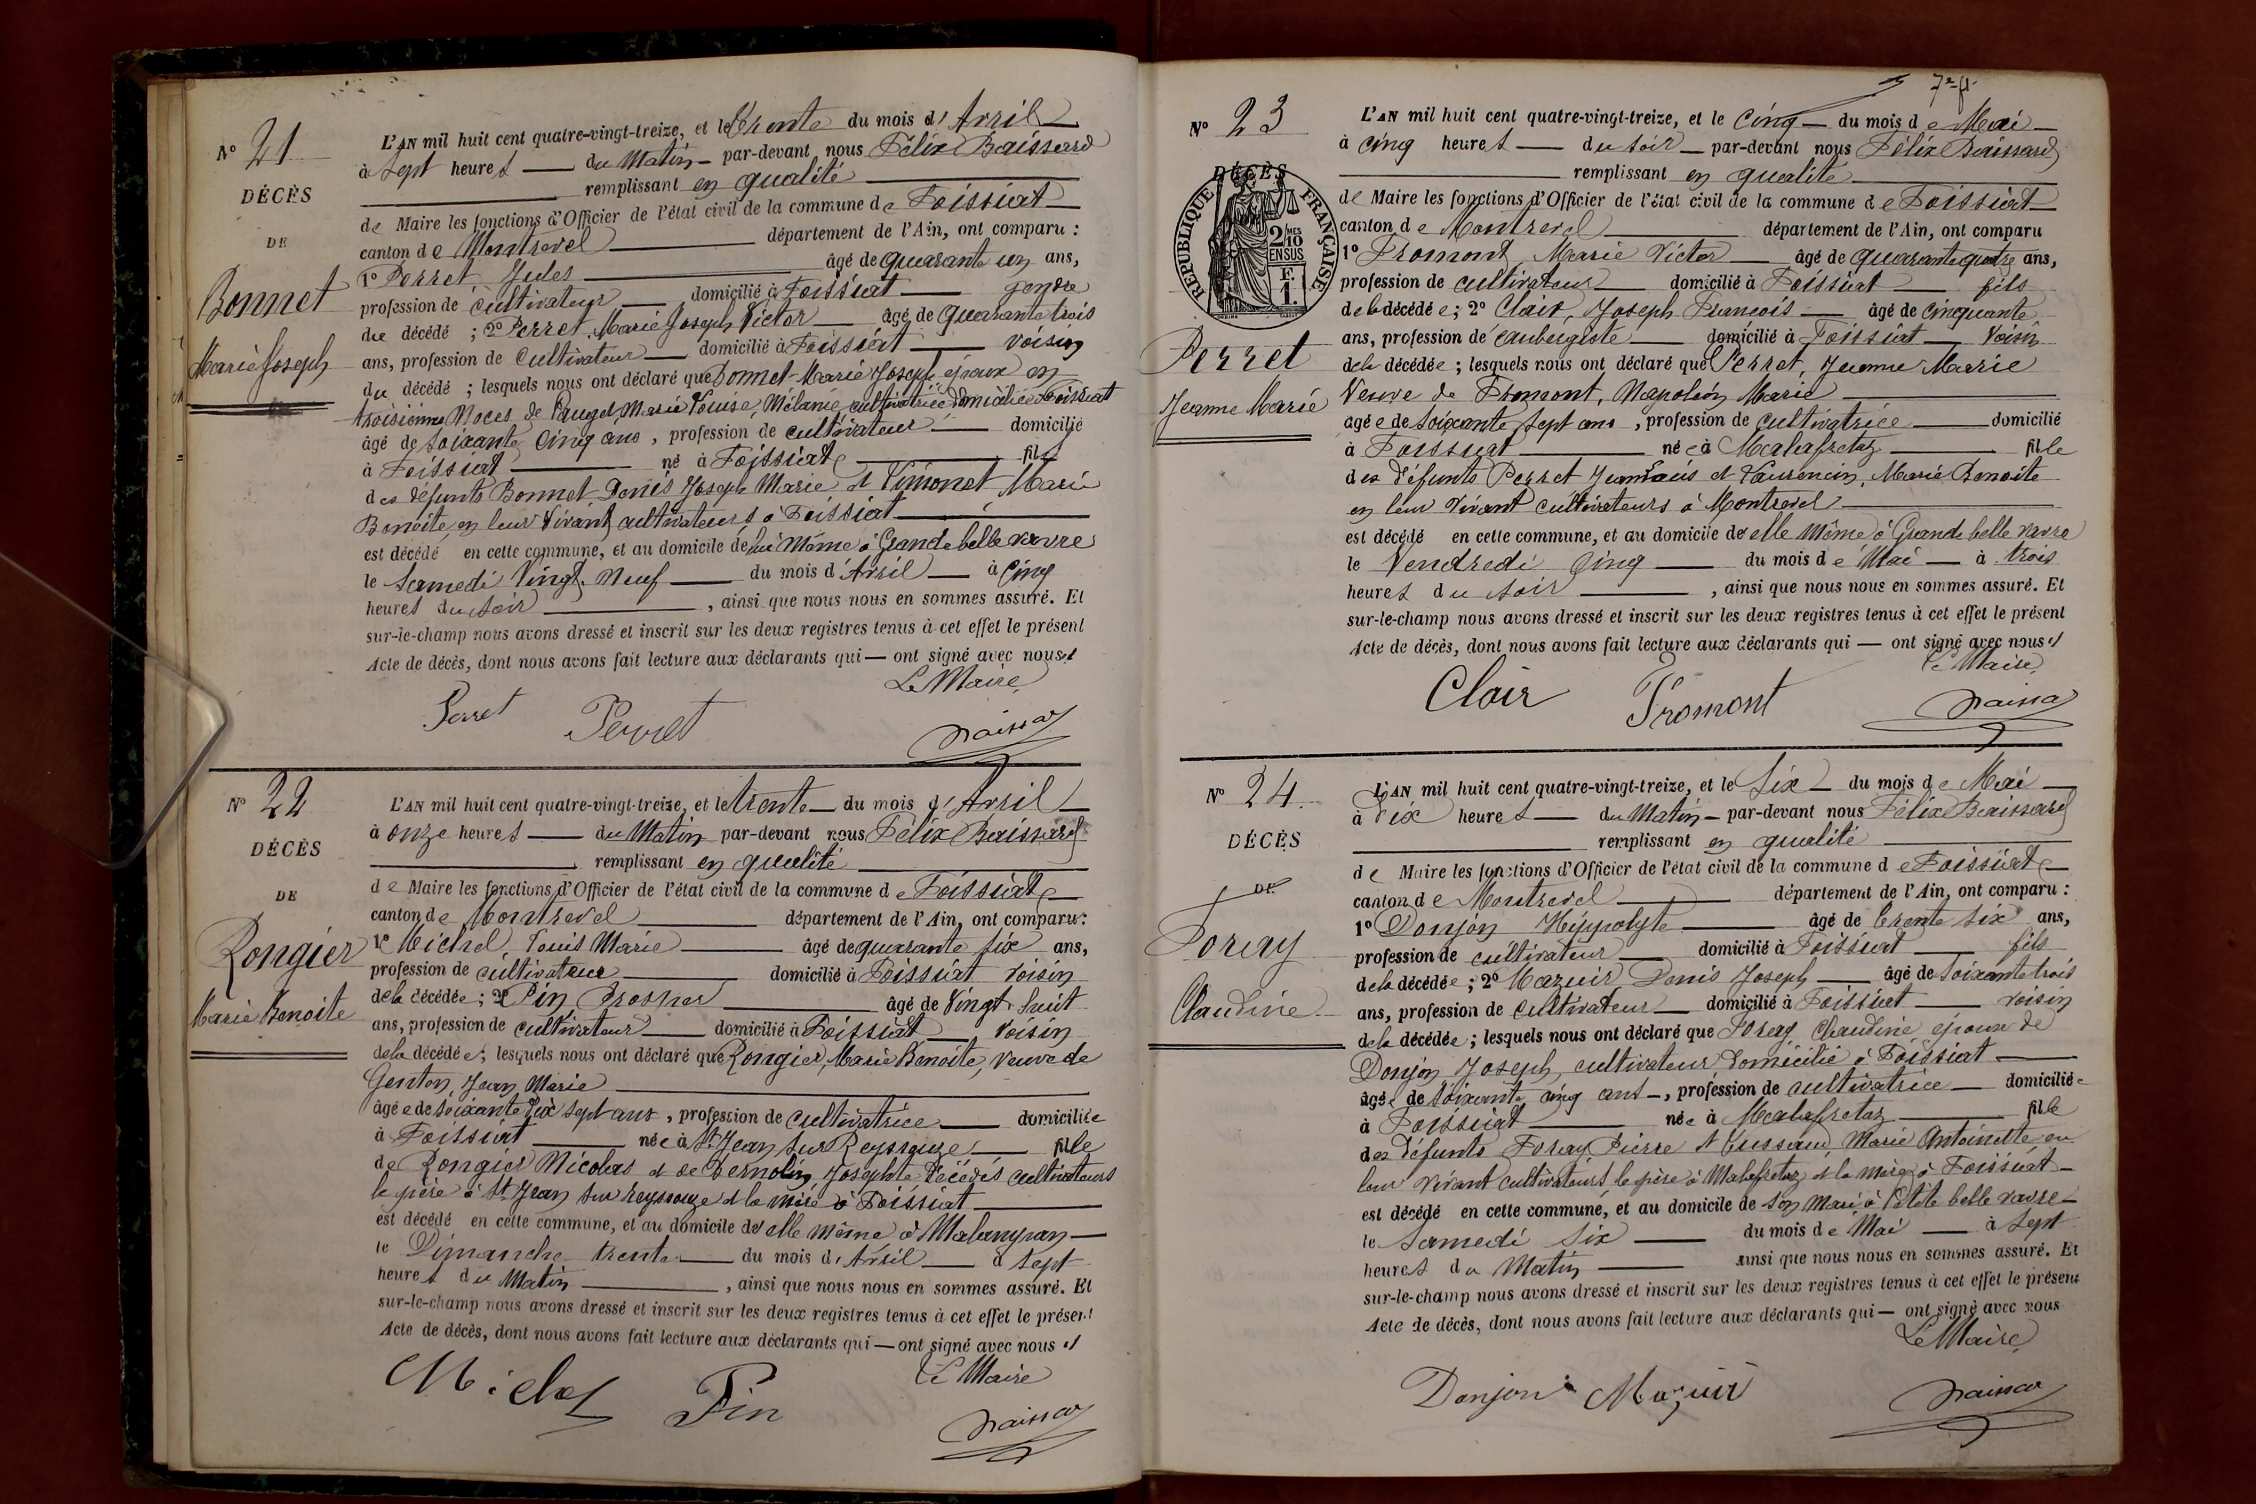 N° 21
DÉCÈS
DE
Bonnet
Marie Joseph
L'AN mil huit cent quatre-vingt-treize, et le trente du mois d'Avril
à Sept heures du Matin par-devant nous Félix Baissard
remplissant en qualité
de Maire les fonctions d'Officier de l'état civil de la commune de Foissiat
canton de Montrevel département de l'Ain, ont comparu :
1° Perret Jules âgé de quarante un ans,
profession de cultivateur domicilié à Foissiat gendre
du décédé ; 2° Perret, Marie Joseph Victor âgé de quarante trois
ans, profession de cultivateur domicilié à Foissiat voisin
du décédé ; lesquels nous ont déclaré que Bonnet Marie Joseph époux en
troisiemes Noces de Pauget Marie Louise, Mélanie, cultivatrice domiciliée Foissiat
âgé de soixante cinq ans, profession de cultivateur domicilié
à Foissiat né à Foissiat fils
des défunts Bonnet Denis Joseph Marie et Vimonet Marie
Benoite, en leur Vivant cultivateurs à Foissiat
est décédé en cette commune, et au domicile de lui Même à Grande belle vavre
le Samedi Vingt Neuf du mois d'Avril à Cinq
heures du soir , ainsi que nous nous en sommes assuré. Et
sur-le-champ nous avons dressé et inscrit sur les deux registres tenus à cet effet le présent
Acte de décès, dont nous avons fait lecture aux déclarants qui — ont signé avec nous et
Le Maire
Perret Perret
N° 22
DÉCÈS
DE
Rongier
Marie Benoite
L'AN mil huit cent quatre-vingt-treize, et le trente du mois d'Avril
à onze heures du Matin par-devant nous Félix Baissard
remplissant en qualité
de Maire les fonctions d'Officier de l'état civil de la commune de Foissiat
canton de Montrevel département de l'Ain, ont comparu :
1° Michel, Louis Marie âgé de quarante six ans,
profession de cultivateur domicilié à Foissiat voisin
de la décédée ; 2° Pin Prosper âgé de Vingt huit
ans, profession de cultivateur domicilié à Foissiat voisin
de la décédée ; lesquels nous ont déclaré que Rongier, Marie Benoite, veuve de
Genton, Jean Marie
âgée de soixante dix sept ans, profession de cultivatrice domiciliée
à Foissiat née à St Jean sur Reyssouze fille
de Rongier Nicolas et de Josephte décédés cultivateurs
le père à St Jean sur reyssouze et la mère à Foissiat
est décédé en cette commune, et au domicile d'elle même à
le Dimanche trente du mois d'Avril à sept
heures du Matin , ainsi que nous nous en sommes assuré. Et
sur-le-champ nous avons dressé et inscrit sur les deux registres tenus à cet effet le présent
Acte de décès, dont nous avons fait lecture aux déclarants qui — ont signé avec nous et
Le Maire
Michel Pin
N° 23
DÉCÈS
RÉPUBLIQUE FRANÇAISE
2/10 MES EN SUS
F. 1.
Perret
Jeanne Marie
L'AN mil huit cent quatre-vingt-treize, et le Cinq du mois de Mai
à cinq heures du soir par-devant nous Félix Baissard
remplissant en qualité
de Maire les fonctions d'Officier de l'état civil de la commune de Foissiat
canton de Montrevel département de l'Ain, ont comparu
1° Fromont, Marie Victor âgé de quarante quatre ans,
profession de cultivateur domicilié à Foissiat fils
de la décédée ; 2° Clair, Joseph François âgé de cinquante
ans, profession d'aubergiste domicilié à Foissiat Voisin
de la décédée ; lesquels nous ont déclaré que Perret, Jeanne Marie
Veuve de Fromont, Napoléon Marie
âgée de soixante sept ans, profession de cultivatrice domicilié
à Foissiat née à Malafretaz fille
des défunts Perret Jean Louis et Laurencin, Marie Benoite
en leur vivant cultivateurs à Montrevel
est décédé en cette commune, et au domicile d'elle même à Grande belle vavre
le Vendredi Cinq du mois de Mai à trois
heures du soir , ainsi que nous nous en sommes assuré. Et
sur-le-champ nous avons dressé et inscrit sur les deux registres tenus à cet effet le présent
Acte de décès, dont nous avons fait lecture aux déclarants qui — ont signé avec nous et
Le Maire
Clair Fromont
N° 24
DÉCÈS
DE
Foray
Claudine
L'AN mil huit cent quatre-vingt-treize, et le Six du mois de Mai
à dix heures du Matin par-devant nous Félix Baissard
remplissant en qualité
de Maire les fonctions d'Officier de l'état civil de la commune de Foissiat
canton de Montrevel département de l'Ain, ont comparu :
1° Donjon Hyppolyte âgé de trente six ans,
profession de cultivateur domicilié à Foissiat fils
de la décédée ; 2° Mazuir Denis Joseph âgé de soixante trois
ans, profession de cultivateur domicilié à Foissiat voisin
de la décédée ; lesquels nous ont déclaré que Foray Claudine épouse de
Donjon Joseph, cultivateur domicilié à Foissiat
âgée de soixante cinq ans, profession de cultivatrice domiciliée
à Foissiat née à Malafretaz fille
des défunts Foray Pierre et Marie Antoinette en
leur vivant cultivateurs le père à Malafretaz et la mère à Foissiat
est décédé en cette commune, et au domicile de son mari à Petite belle vavre
le Samedi Six du mois de Mai à Sept
heures du Matin ainsi que nous nous en sommes assuré. Et
sur-le-champ nous avons dressé et inscrit sur les deux registres tenus à cet effet le présent
Acte de décès, dont nous avons fait lecture aux déclarants qui — ont signé avec nous
Le Maire
Donjon Mazuir